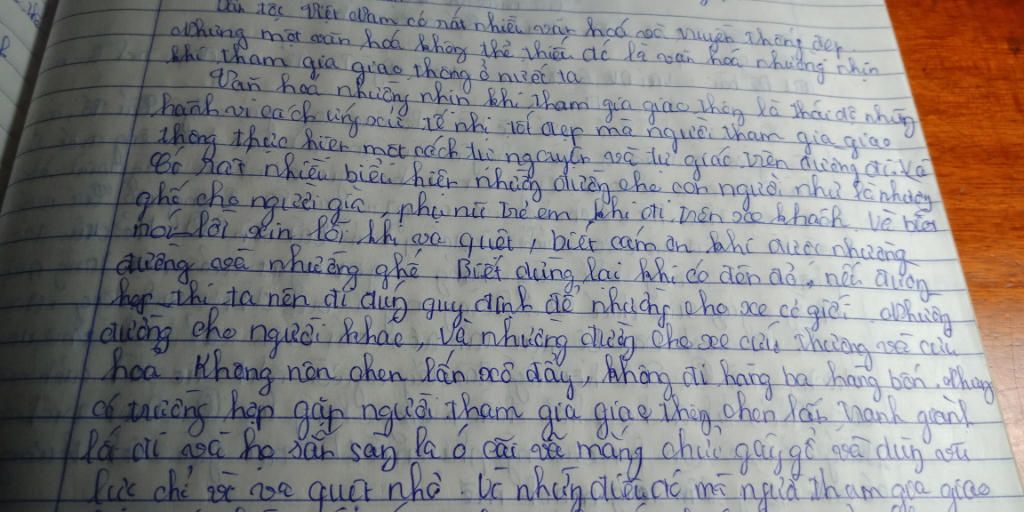 Dân tộc Việt Nam có rất nhiều văn hoá và truyền thống đẹp
Nhưng một văn hoá không thể thiếu đó là văn hoá nhường nhịn
khi tham gia giao thông ở nước ta
Văn hoá nhường nhịn khi tham gia giao thông là thái độ những
hành vi cách ứng xử tế nhị tốt đẹp mà người tham gia giao
thông thực hiện một cách tự nguyện và tự giác trên đường đi. Và
Có rất nhiều biểu hiện nhường đường cho con người như là nhường
ghế cho người già, phụ nữ trẻ em khi đi trên xe khách. Và biết
nói lời xin lỗi khi va quệt, biết cảm ơn khi được nhường
đường và nhường ghế. Biết dừng lại khi có đèn đỏ, nếu đường
hẹp thì ta nên đi đúng quy định để nhường cho xe cơ giới. Nhường
đường cho người khác, Và nhường đường cho xe cứu thương và cứu
hoả. Không nên chen lấn xô đẩy, không đi hàng ba hàng bốn. Nhưng
có trường hợp gặp người tham gia giao thông chen lấn, tranh giành
lối đi và họ sẵn sàng la ó cãi vã mắng chửi gây gổ và dùng vũ
lực chỉ vì va quệt nhỏ. Và những điều đó mà người tham gia giao